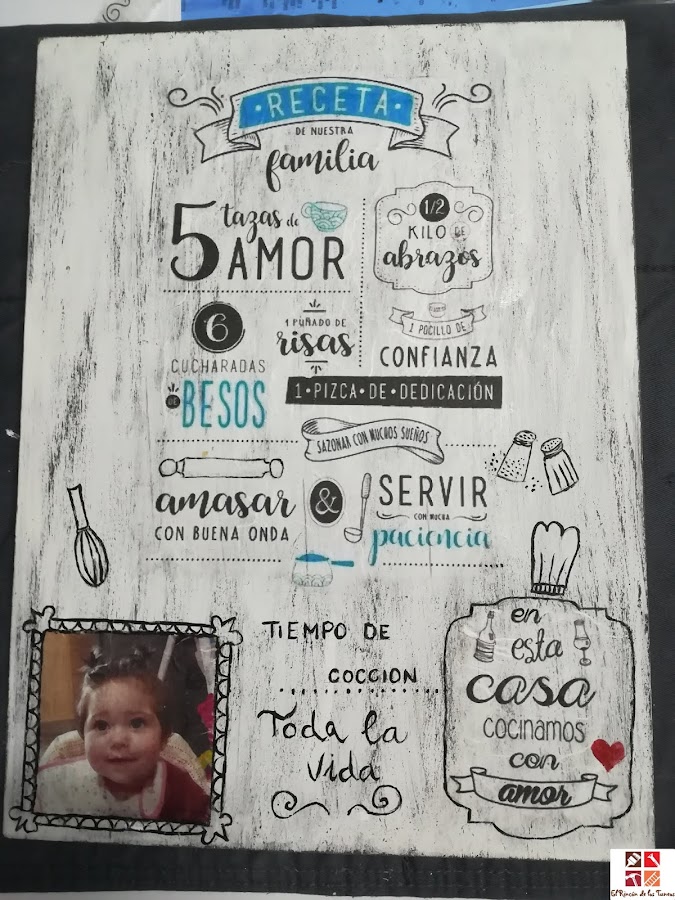 RECETA
DE NUESTRA
familia
5 tazas de
AMOR
1/2
KILO DE
abrazos
6
CUCHARADAS
DE BESOS
1 PUÑADO DE
risas
1 POCILLO DE
CONFIANZA
1•PIZCA•DE•DEDICACIÓN
SAZONAR CON MUCHOS SUEÑOS
amasar
CON BUENA ONDA
&
SERVIR
CON MUCHA
paciencia
TIEMPO DE
COCCION
Toda la
Vida
en
esta
casa
COCINAMOS
con
amor
El Rincón de las Tareas